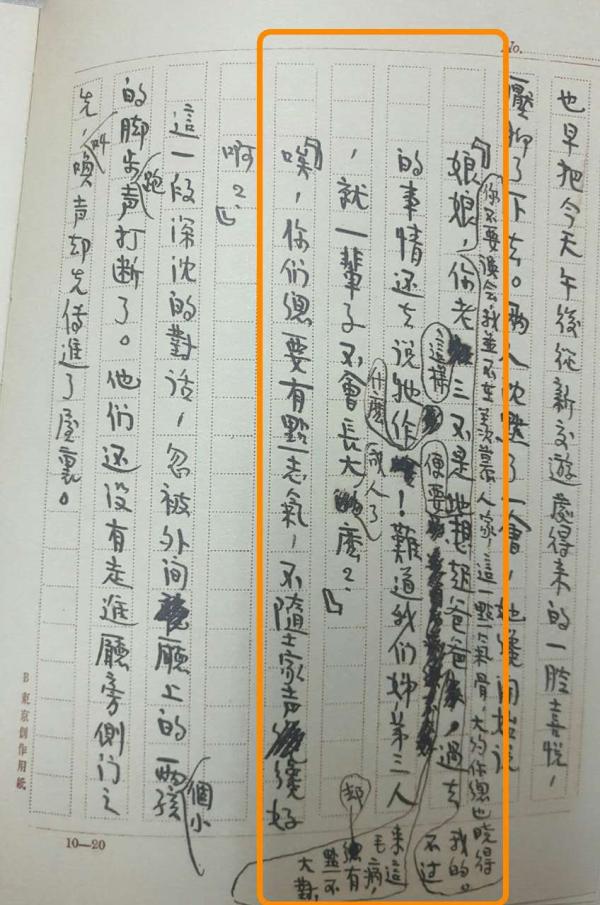 No.
也早把今天午後從新交遊處得来的一腔喜悅，
壓抑了下去。兩人沈默了一會，她纔開始說
你不要誤会，我並不在羨慕人家，這一點氣骨，大約你總也曉得我的。不过
「娘娘，你老三又是想起爸爸，過去
這樣
便要
的事情还去说牠作什麼！難道我们姊弟三人
成人了
，就一輩子不會長大麼？」
「唉，你们總要有點志氣，不隨士家声纔好
却總有點不大對，
来這毛病，
啊？」
這一段深沈的對话，忽被外间廳上的两個小孩
的跑脚步声打断了。他们还没有走進廳旁側门之
先，叫喚声却先傳進了屋裏。
10—20
B 東京創作用紙